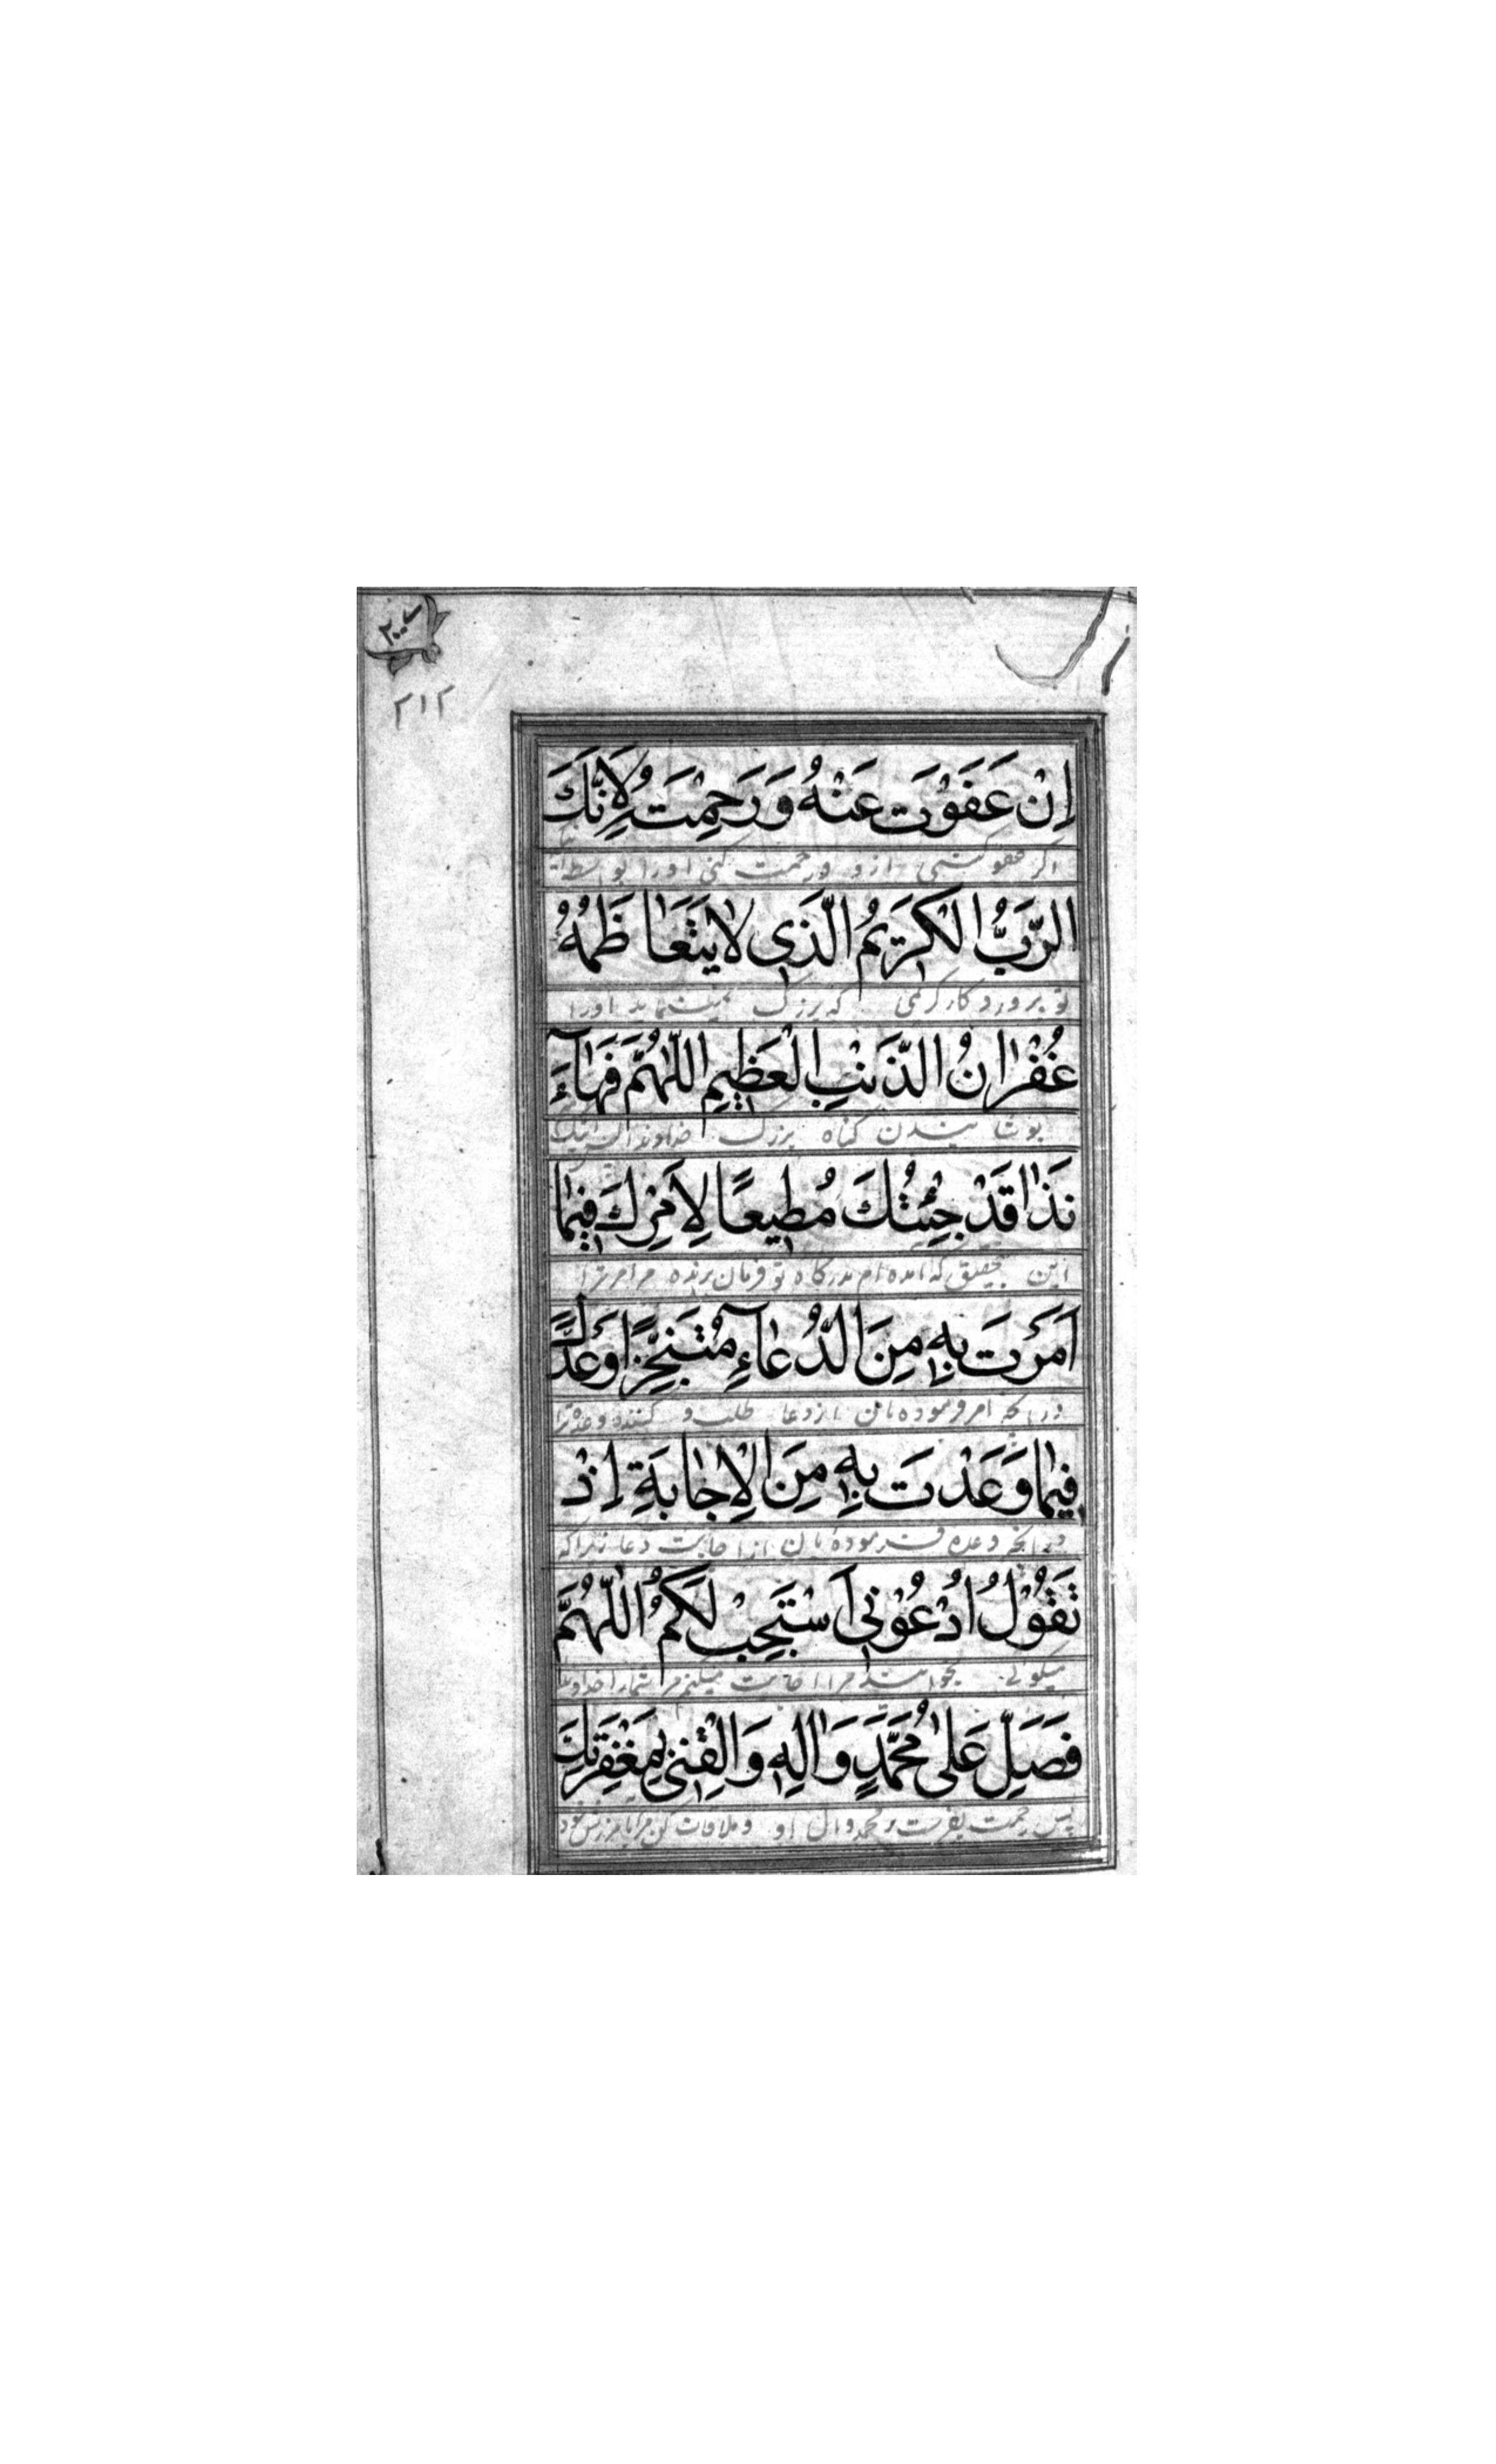 ۲۰۰
۲۱۲
اِنْ عَفَوْتَ عَنْهُ وَرَحِمْتَهُ لِاَنَّكَ
اگر عفو کنی ازو و رحمت کنی اورا بواسطه آنکه
الرَّبُّ الْكَرِيمُ الَّذِى لَا يَتَعَاظَمُهُ
تو پروردگار کریمی که بزرگ نمینماید اورا
غُفْرَانُ الذَّنْبِ الْعَظِيمِ اللّٰهُمَّ فَهَاۤ اَ
پوشانیدن گناه بزرگ خداوندا اینک
نَذَا قَدْ جِئْتُكَ مُطِيعًا لِاَمْرِكَ فِيمَا
این بتحقیق که آمده ام بدرگاه تو فرمان برنده مر امر ترا
اَمَرْتَ بِهِ مِنَ الدُّعَاۤءِ مُتَنَجِّزًا وَعْدَكَ
در آنچه امر فرموده بآن از دعا طلب کننده وعده ترا
فِيمَا وَعَدْتَ بِهِ مِنَ الْاِجَابَةِ اِذْ
در آنچه وعده فرموده بآن از اجابت دعا زیراکه
تَقُوْلُ ادْعُوْنِى اَسْتَجِبْ لَكُمْ اَللّٰهُمَّ
میگوئی بخوانید مرا اجابت میکنم مر شمارا خداوندا
فَصَلِّ عَلَىٰ مُحَمَّدٍ وَاٰلِهِ وَالْقِنِى بِمَغْفِرَتِكَ
پس رحمت بفرست بر محمد و آل او و ملاقات کن مرا بامرزش خود